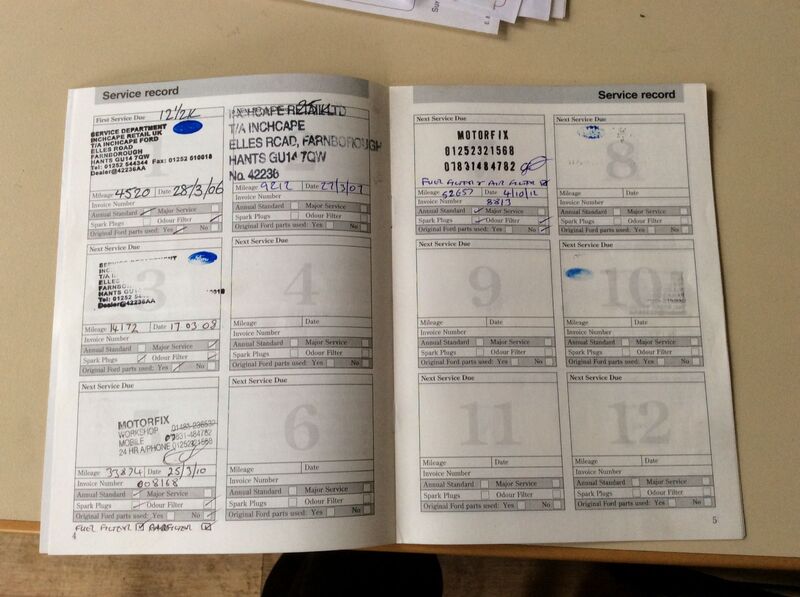 Service record
First Service Due 12½K
SERVICE DEPARTMENT
INCHCAPE RETAIL UK
T/A INCHCAPE FORD
ELLES ROAD
FARNBOROUGH
HANTS GU14 7QW
Tel: 01252 544344 Fax: 01252 510018
Dealer@42236AA
Mileage 4520 Date 28/3/06
Invoice Number
Annual Standard Major Service
Spark Plugs Odour Filter
Original Ford parts used: Yes No
HCAPE RETAIL LTD
T/A INCHCAPE
ELLES ROAD, FARNBOROUGH
HANTS GU14 7QW
No. 42236
Mileage 9212 Date 27/3/07
Invoice Number
Annual Standard Major Service
Spark Plugs Odour Filter
Original Ford parts used: Yes No
Next Service Due
3
SERVICE DEPARTMENT
INC
T/A I
ELLES
FARNBO
HANTS GU1
Tel: 01252 54
Dealer@42236AA
Ford
Mileage 14172 Date 17 03 08
Invoice Number
Annual Standard Major Service
Spark Plugs Odour Filter
Original Ford parts used: Yes No
Next Service Due
4
Mileage Date
Invoice Number
Annual Standard Major Service
Spark Plugs Odour Filter
Original Ford parts used: Yes No
Next Service Due
MOTORFIX
WORKSHOP
MOBILE 07831-484782
24 HR A/PHONE 01252321568
Mileage 33874 Date 25/3/10
Invoice Number 008168
Annual Standard Major Service
Spark Plugs Odour Filter
Original Ford parts used: Yes No
FUEL FILTER AIR FILTER
Next Service Due
6
Mileage Date
Invoice Number
Annual Standard Major Service
Spark Plugs Odour Filter
Original Ford parts used: Yes No
4
Service record
Next Service Due
MOTORFIX
01252321568
07831484782
FUEL FILTER + AIR FILTER
Mileage 62657 Date 4/10/12
Invoice Number 8813
Annual Standard Major Service
Spark Plugs Odour Filter
Original Ford parts used: Yes No
Next Service Due
8
Mileage Date
Invoice Number
Annual Standard Major Service
Spark Plugs Odour Filter
Original Ford parts used: Yes No
Next Service Due
9
Mileage Date
Invoice Number
Annual Standard Major Service
Spark Plugs Odour Filter
Original Ford parts used: Yes No
Next Service Due
10
Mileage Date
Invoice Number
Annual Standard Major Service
Spark Plugs Odour Filter
Original Ford parts used: Yes No
Next Service Due
11
Mileage Date
Invoice Number
Annual Standard Major Service
Spark Plugs Odour Filter
Original Ford parts used: Yes No
Next Service Due
12
Mileage Date
Invoice Number
Annual Standard Major Service
Spark Plugs Odour Filter
Original Ford parts used: Yes No
5